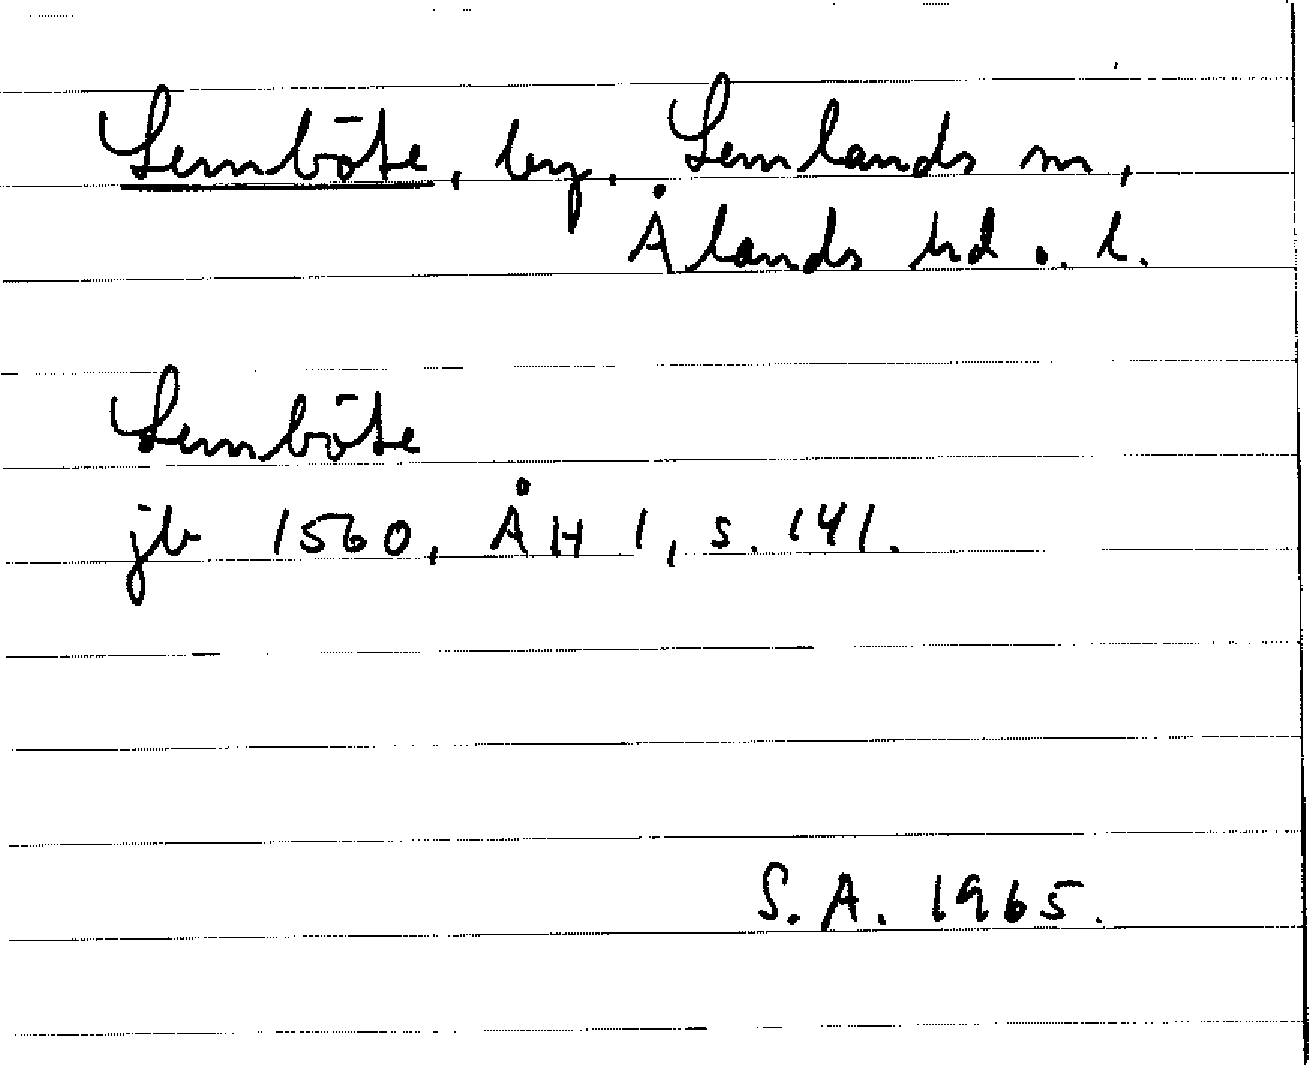 Lemböte, by. Lemlands sn,
Ålands hd o. l.
Lemböte
jb 1560, ÅH 1, s. 141.
S. A. 1965.